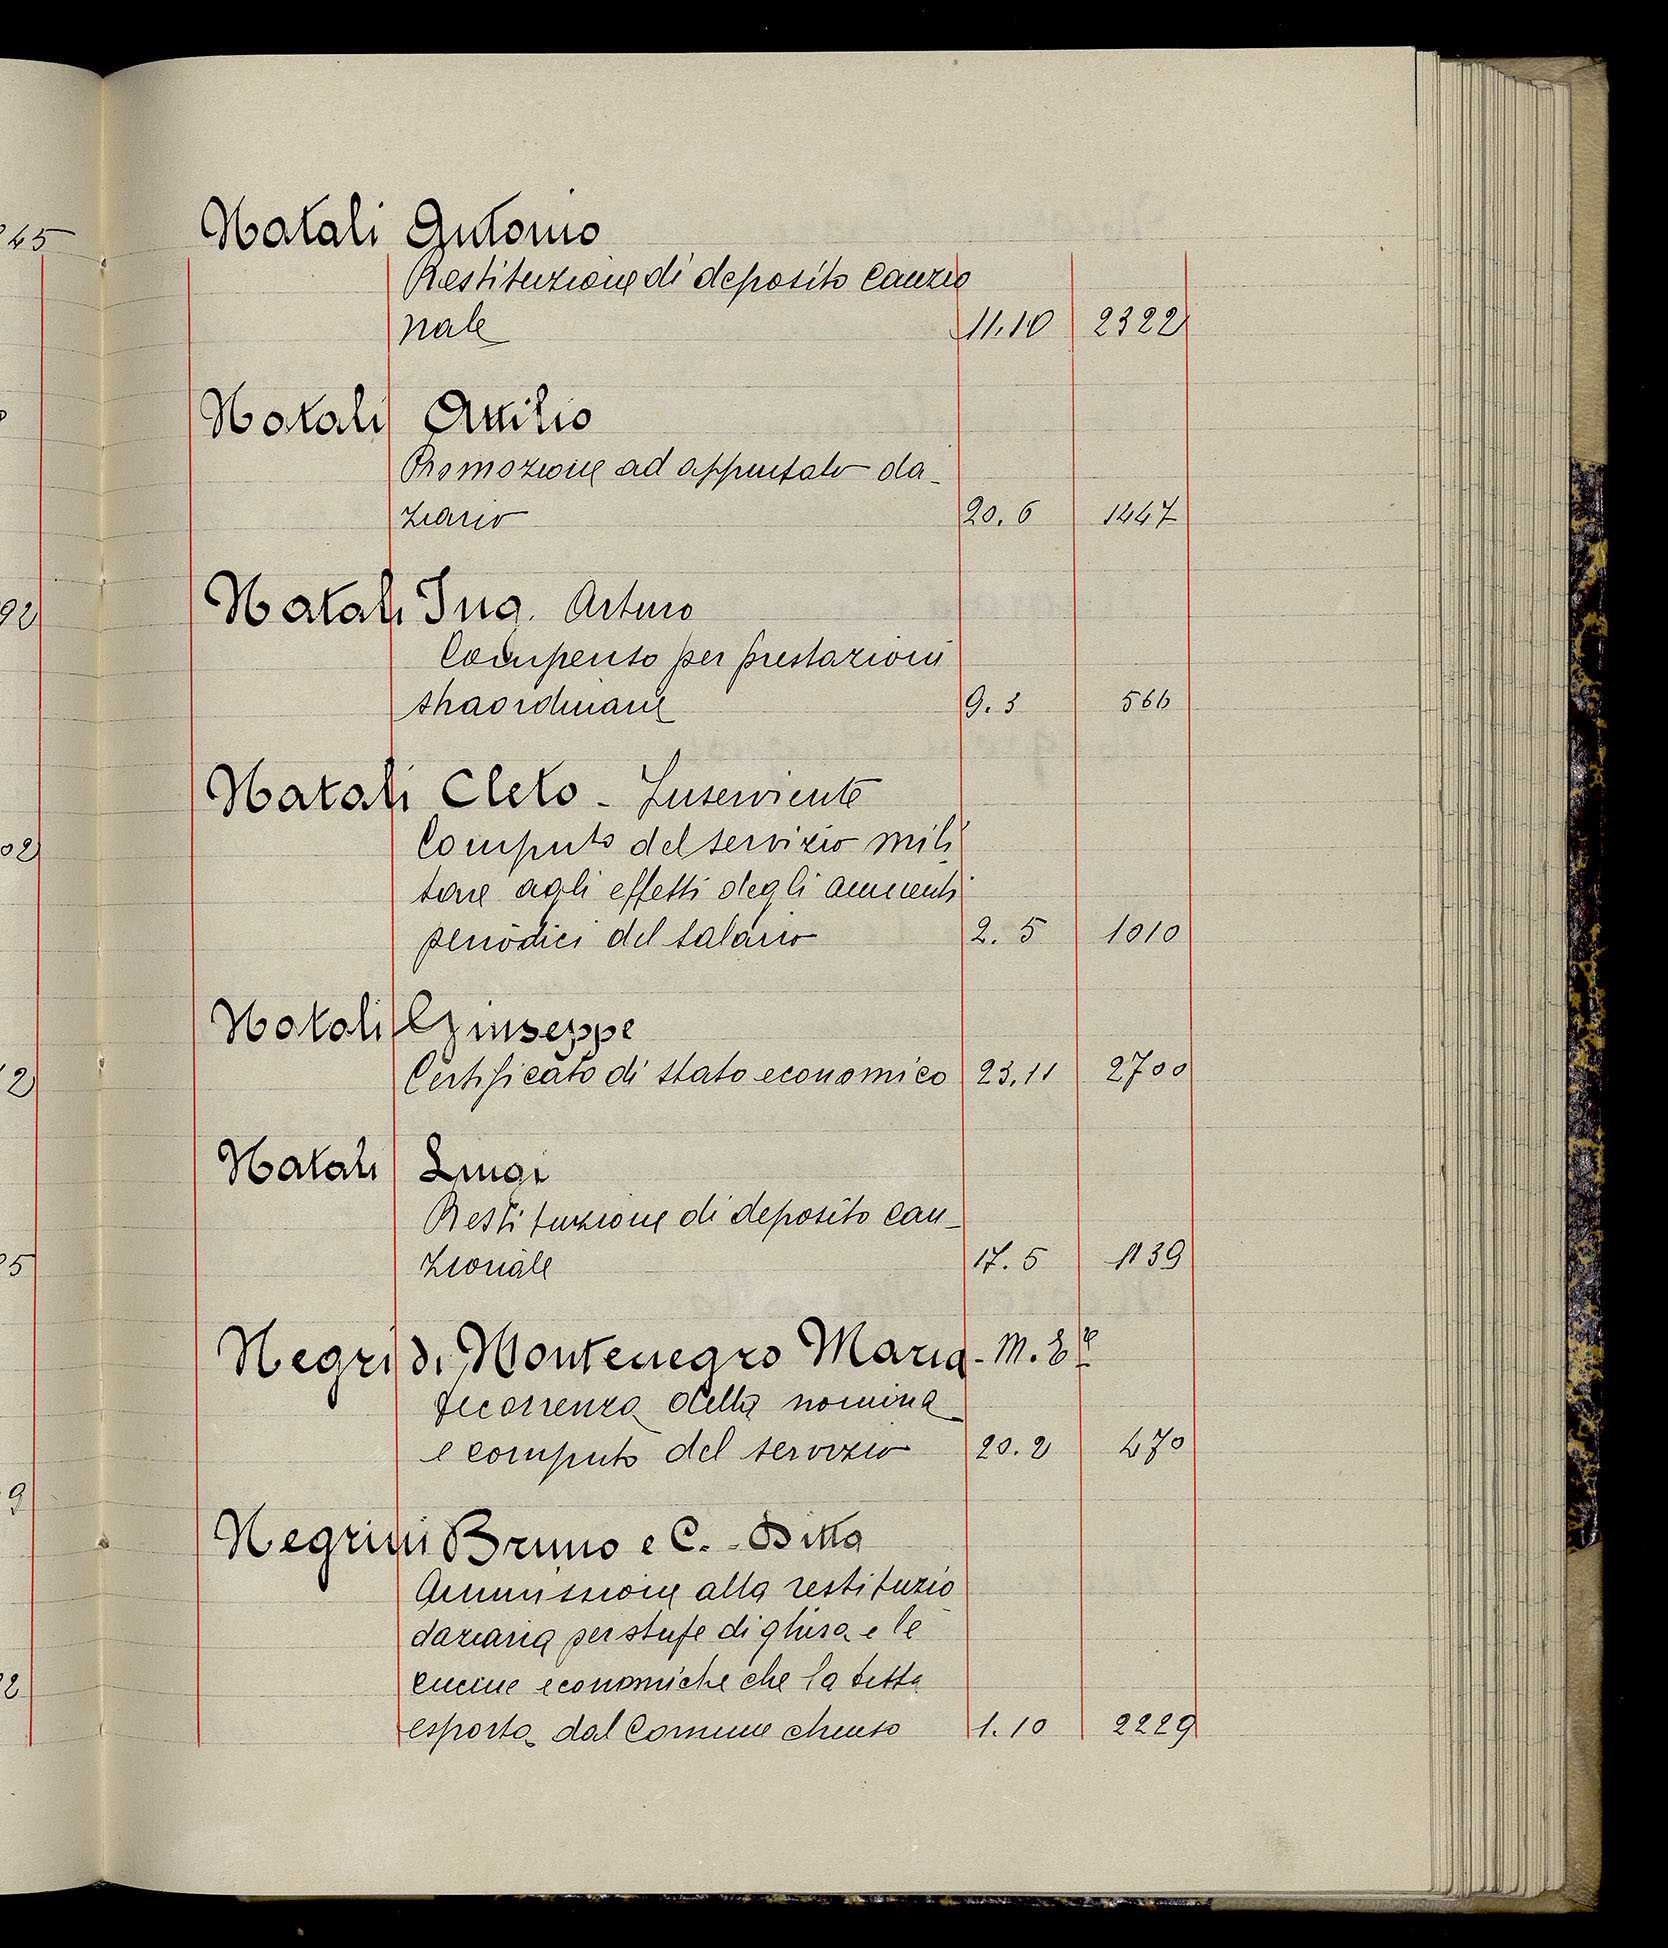 Natali Antonio
Restituzione di deposito cauzio
nale 11.10 2322
Natali Attilio
Promozione ad appuntato da-
ziario 20.6 1447
Natali Ing. Arturo
Compenso per prestazioni
straordinarie 9.3 566
Natali Cleto - Inserviente
Computo del servizio mili
tare agli effetti degli aumenti
periodici del salario 2.5 1010
Natali Giuseppe
Certificato di stato economico 23.11 2700
Natali Luigi
Restituzione di deposito cau-
zionale 17.5 1139
Negri di Montenegro Maria - M. E.e
decorrenza della nomina
e computo del servizio 20.2 470
Negrini Bruno e C. - Ditta
Ammissione alla restituzio
daziaria per stufe di ghisa e le
cucine economiche che la ditta
esporta dal Comune chiuso 1.10 2229